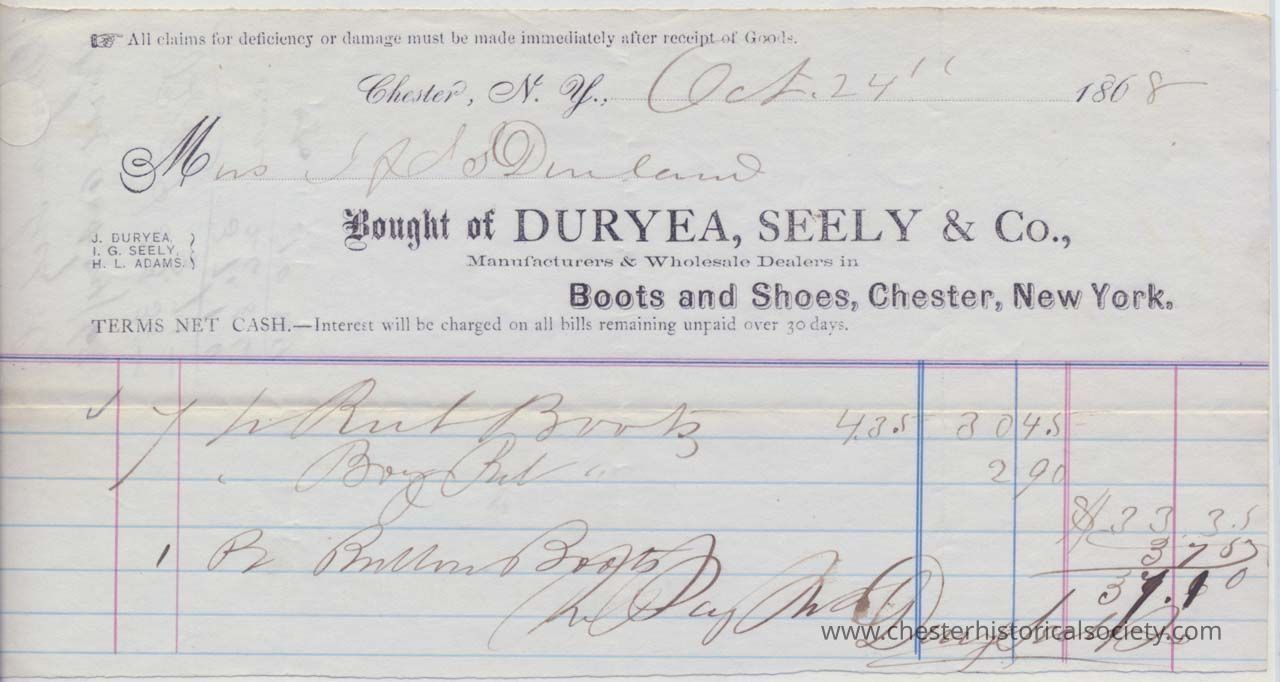 ☞ All claims for deficiency or damage must be made immediately after receipt of Goods.
Chester, N. Y., Oct. 24" 1868
Mrs Durland
Bought of DURYEA, SEELY & Co.,
J. DURYEA,
I. G. SEELY,
H. L. ADAMS.
Manufacturers & Wholesale Dealers in
Boots and Shoes, Chester, New York.
TERMS NET CASH.—Interest will be charged on all bills remaining unpaid over 30 days.
7 Boots 4.35 30 45
" Boys " 2 90
$33.35
1 Button Boots 3 75
37.10
www.chesterhistoricalsociety.com